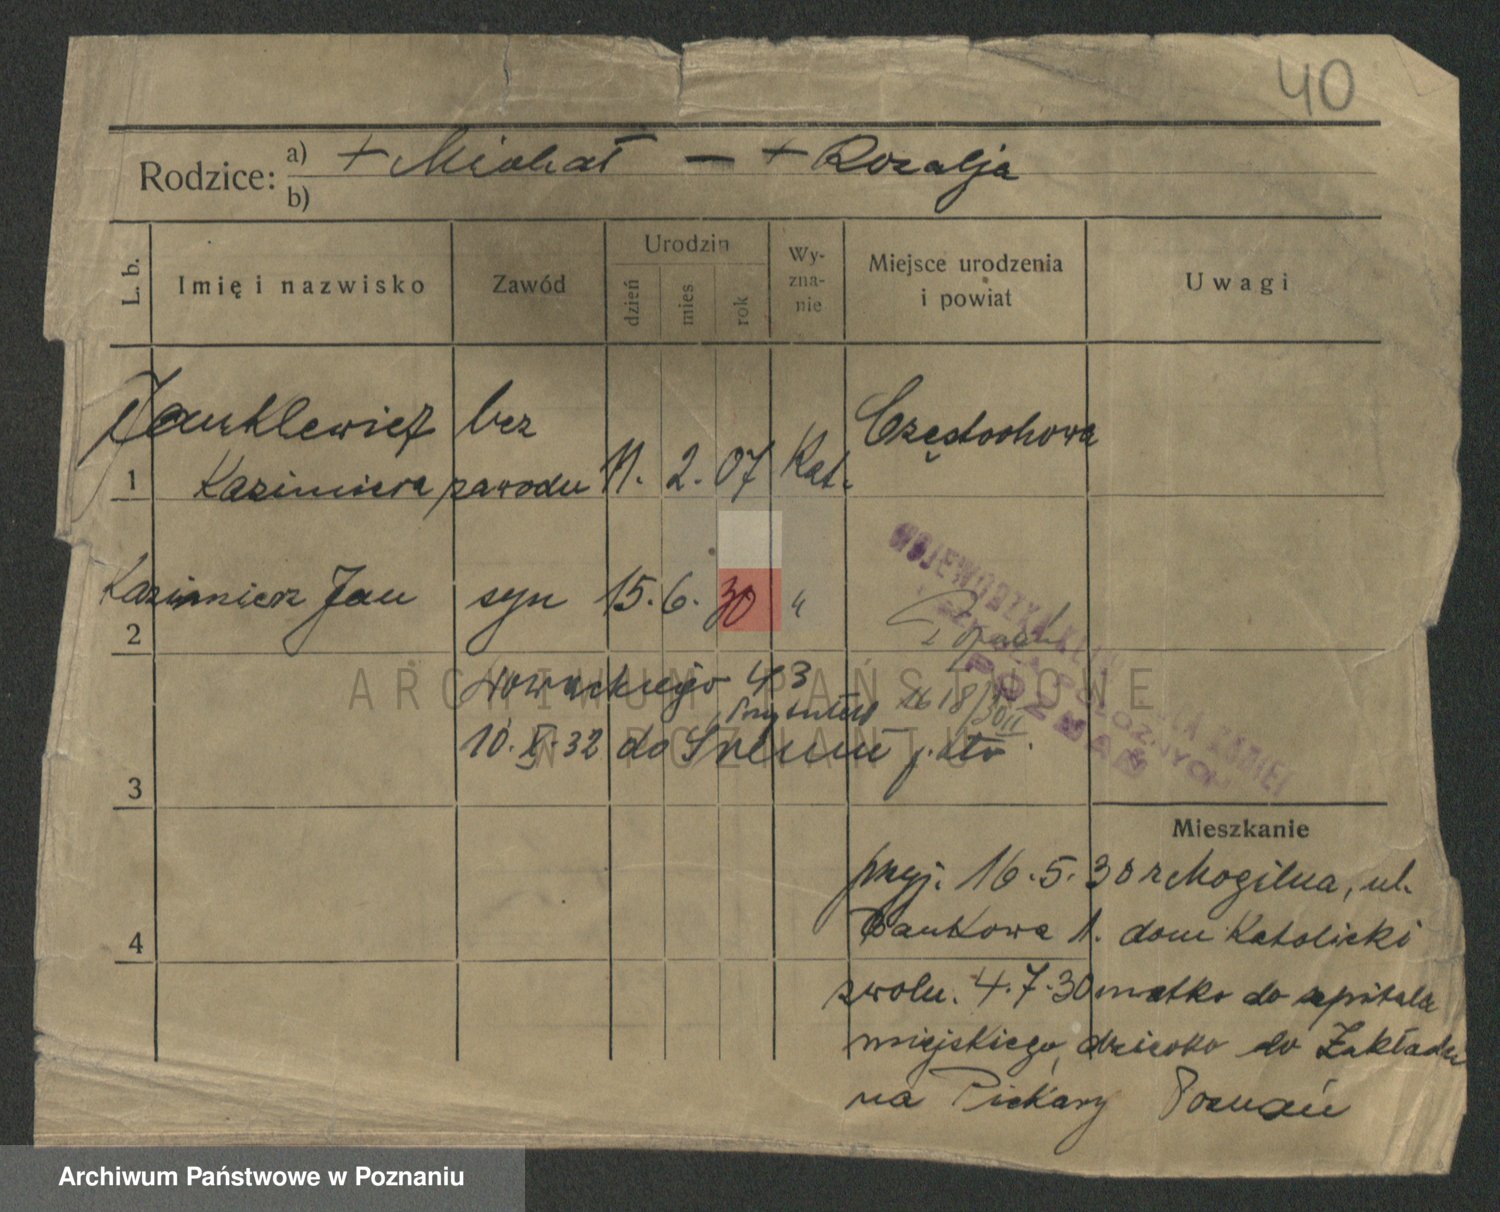 40
Rodzice: a) + Michał — + Rozalja
b)
L. b.
Imię i nazwisko
Zawód
Urodzin
dzień
mies
rok
Wy-
zna-
nie
Miejsce urodzenia
i powiat
Uwagi
Jankiewicz bez Częstochowa
1 Kazimiera zawodu 11. 2. 07 Kat.
2 Kazimierz Jan syn 15. 6. 30 "
WOJEWÓDZKA KLINIKA
POZNAŃ
Słowackiego 43
Przytulisko
10. X. 32 do Śremu
3
ARCHIWUM PAŃSTWOWE
W POZNANIU
Mieszkanie
przyj. 16.5.30 z Mogilna, ul.
4 Bankowa 1. dom Katolicki
zwoln. 4.7.30 matka do szpitala
miejskiego, dziecko do Zakładu
na Piekary Poznań
Archiwum Państwowe w Poznaniu